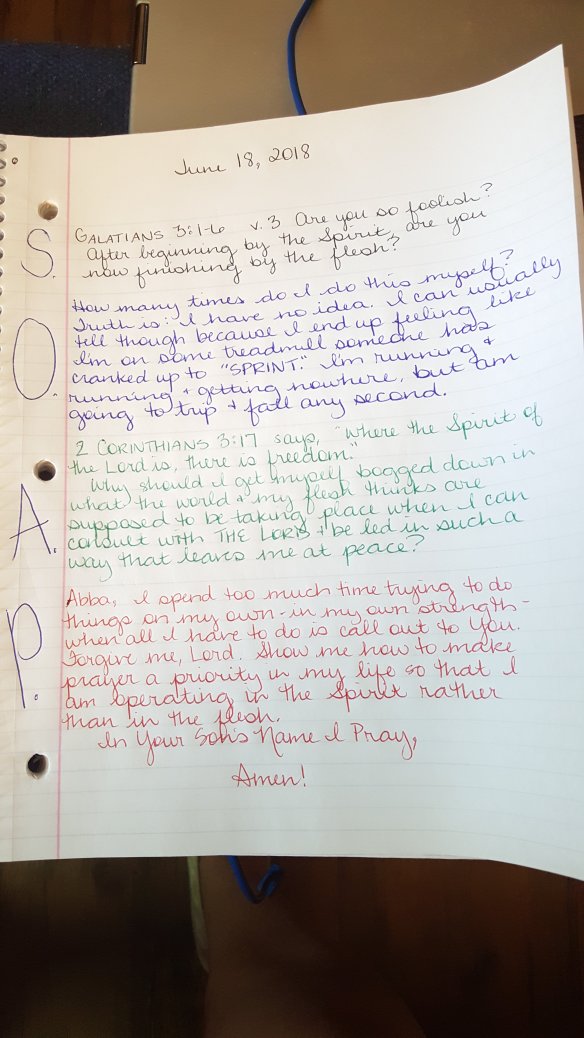 June 18, 2018
S.
GALATIANS 3:1-6 v.3 Are you so foolish?
After beginning by the Spirit, are you
now finishing by the flesh?
O.
How many times do I do this myself?
Truth is: I have no idea. I can usually
tell though because I end up feeling like
I'm on some treadmill someone has
cranked up to "SPRINT." I'm running +
running + getting nowhere, but am
going to trip + fall any second.
2 CORINTHIANS 3:17 says, "Where the Spirit of
the Lord is, there is freedom."
A.
Why should I get myself bogged down in
what the world + my flesh thinks are
supposed to be taking place when I can
consult with THE LORD + be led in such a
way that leaves me at peace?
P.
Abba, I spend too much time trying to do
things on my own - in my own strength -
when all I have to do is call out to You.
Forgive me, Lord. Show me how to make
prayer a priority in my life so that I
am operating in the Spirit rather
than in the flesh.
In Your Son's Name I Pray,
Amen!